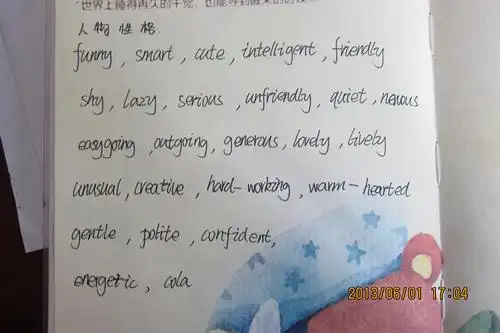 人物性格.
funny, smart, cute, intelligent, friendly
shy, lazy, serious, unfriendly, quiet, nenous
easygoing, outgoing, generous, lovely, lively
unusual, creative, hard-working, warm-hearted
gentle, polite, confident,
energetic, cola
2013/06/01 17:04